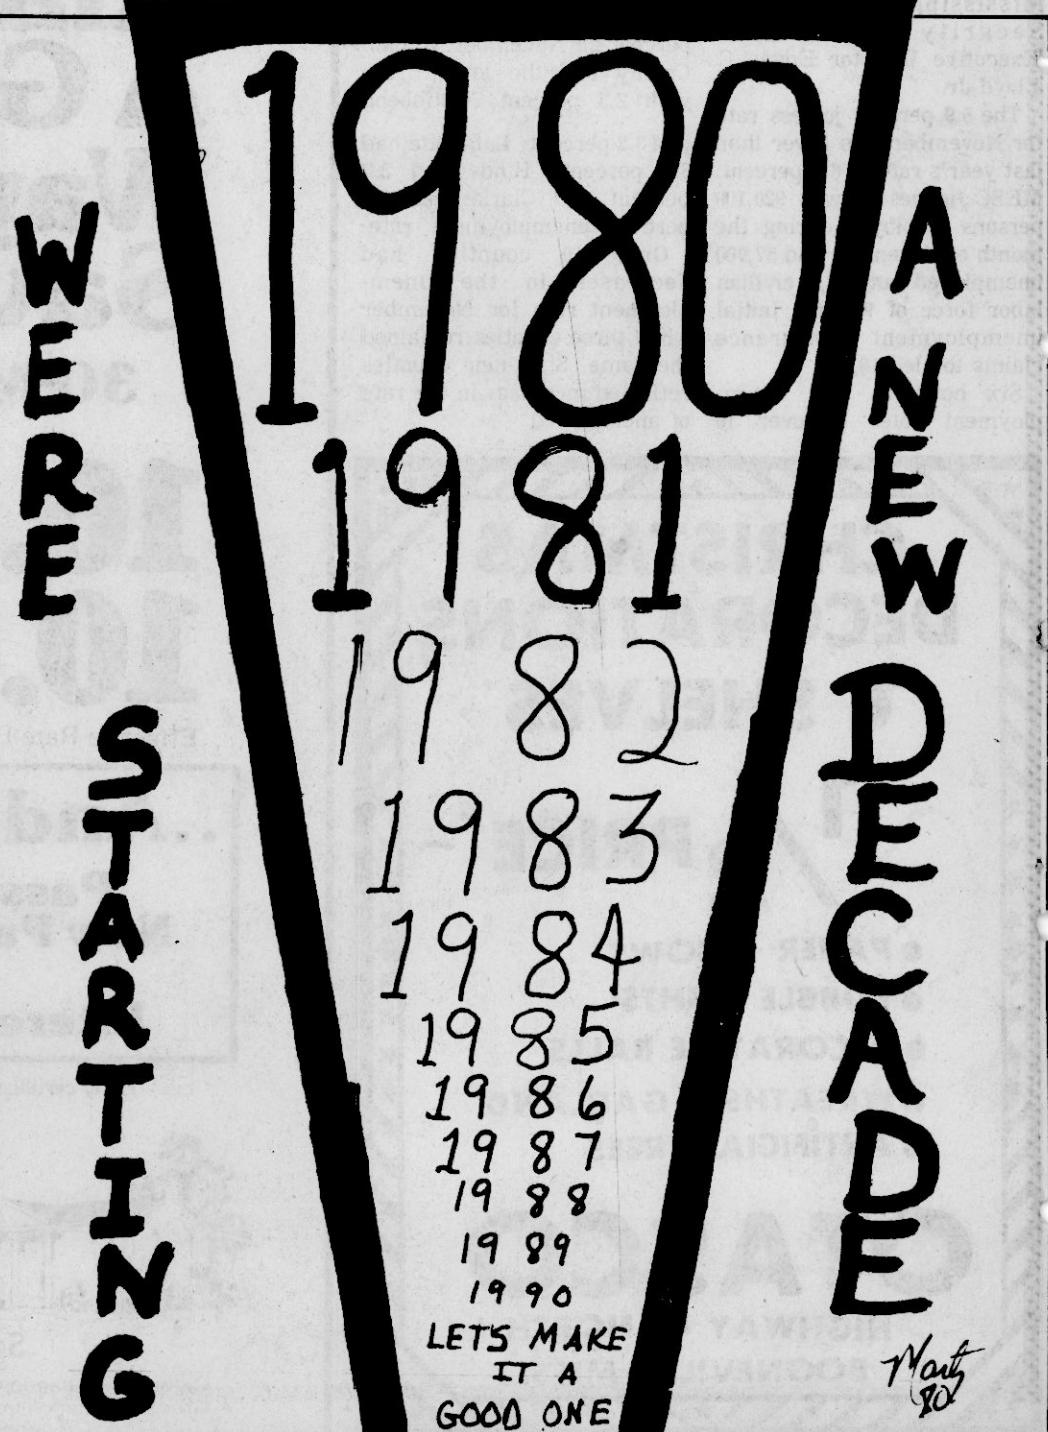 WERE
STARTING
1980
1981
1982
1983
1984
1985
1986
1987
1988
1989
1990
LETS MAKE
IT A
GOOD ONE
A
NEW
DECADE
Marty
80